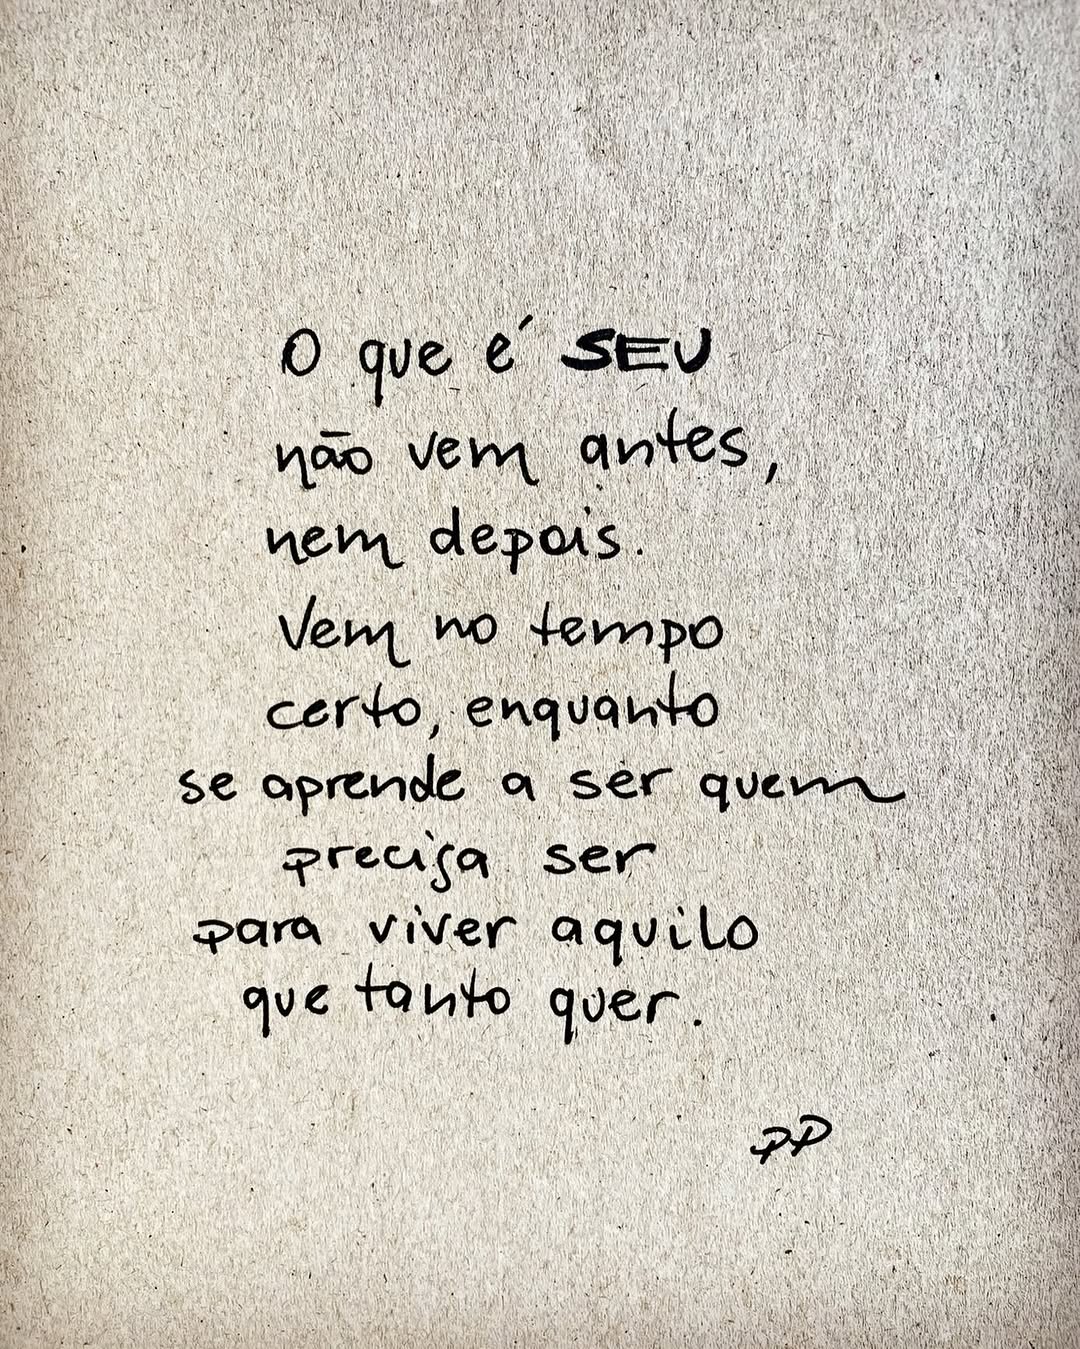 O que é SEU
não vem antes,
nem depois.
Vem no tempo
certo, enquanto
se aprende a ser quem
precisa ser
para viver aquilo
que tanto quer.
PP